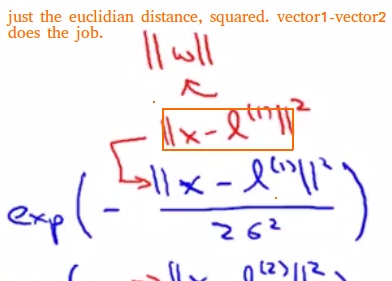 just the euclidian distance, squared. vector1-vector2
does the job.
||w||
||x - l^(1)||^2
exp(- ||x - l^(1)||^2 / 2σ^2)
||x l^(2)||^2